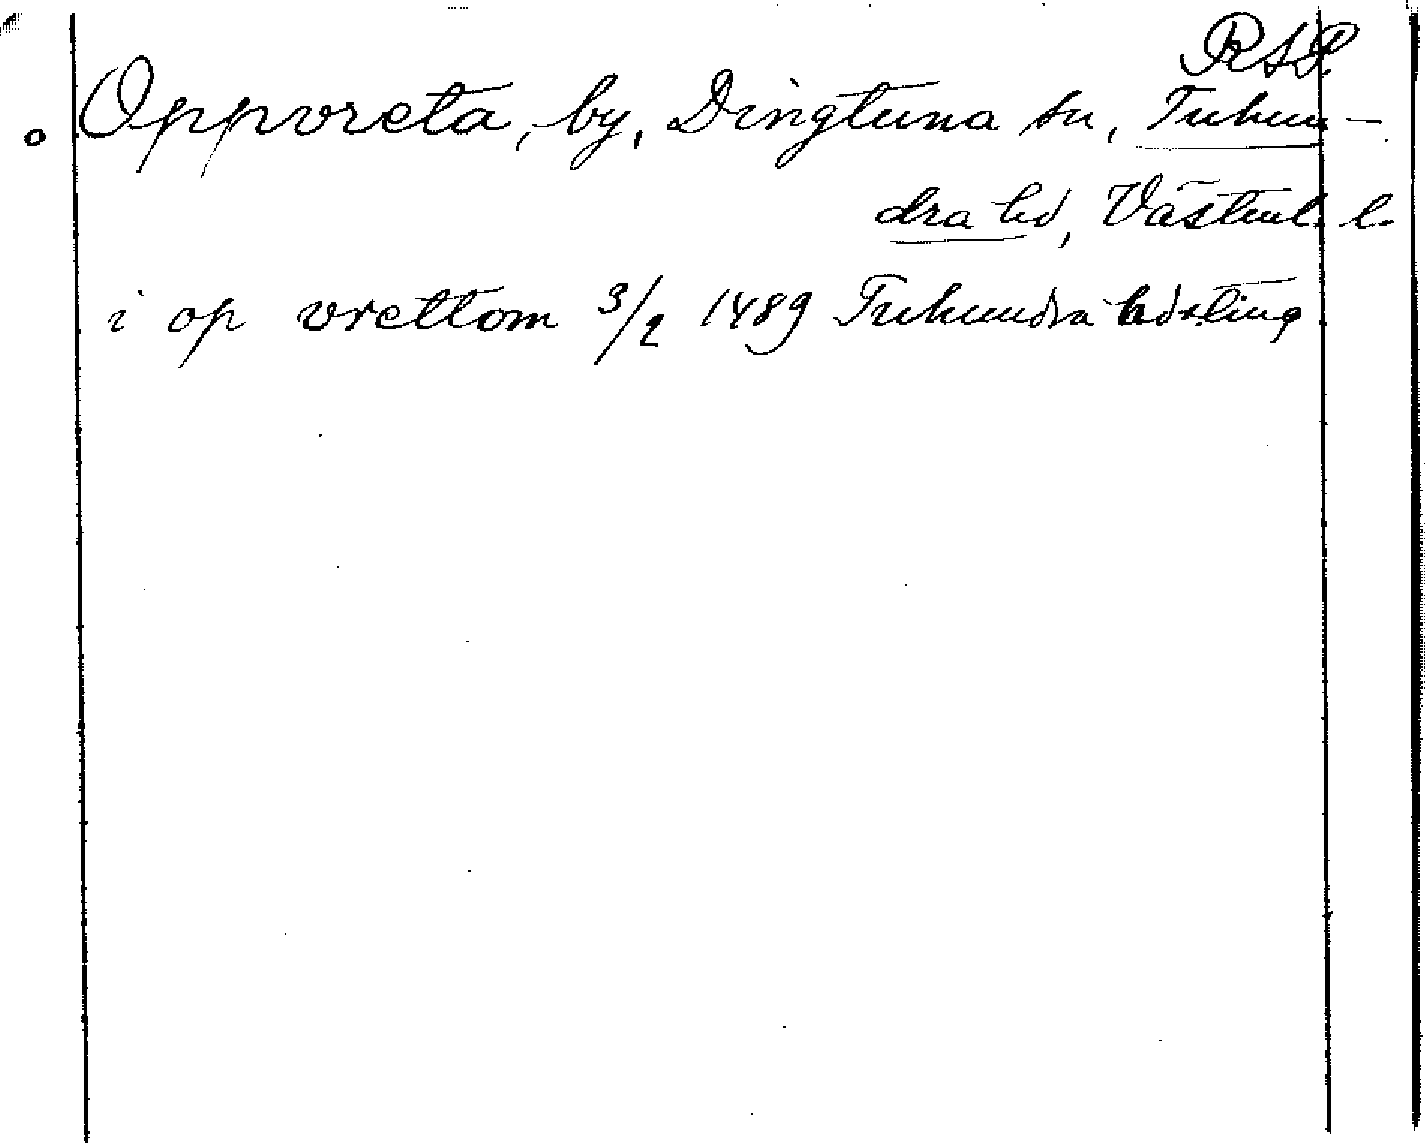 RAP.
Oppvreta, by, Dingtuna sn, Tuhun-
dra hd, Västml. l.
i op vrettom 3/2 1489 Tuhundra hdsting